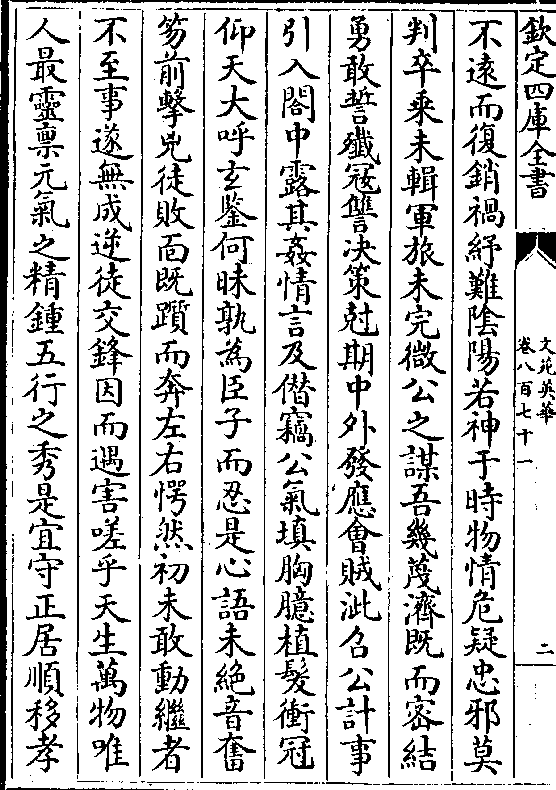 欽定四庫全書
文苑英華
卷八百七十一
二
不遠而復銷禍紓難陰陽若神于時物情危疑忠邪莫
判卒乗未輯軍旅未完微公之謀吾幾蔑濟既而密結
勇敢誓殲冦讐决策尅期中外發應會賊泚召公計事
引入閤中露其姦情言及僭竊公氣填胸臆植髮衝冠
仰天大呼𤣥鑒何昧孰為臣子而忍是心語未絶音奮
笏前擊兇徒敗面既躓而奔左右愕然初未敢動繼者
不至事遂無成逆徒交鋒因而遇害嗟乎天生萬物唯
人最靈禀元氣之精鍾五行之秀是宜守正居順移孝